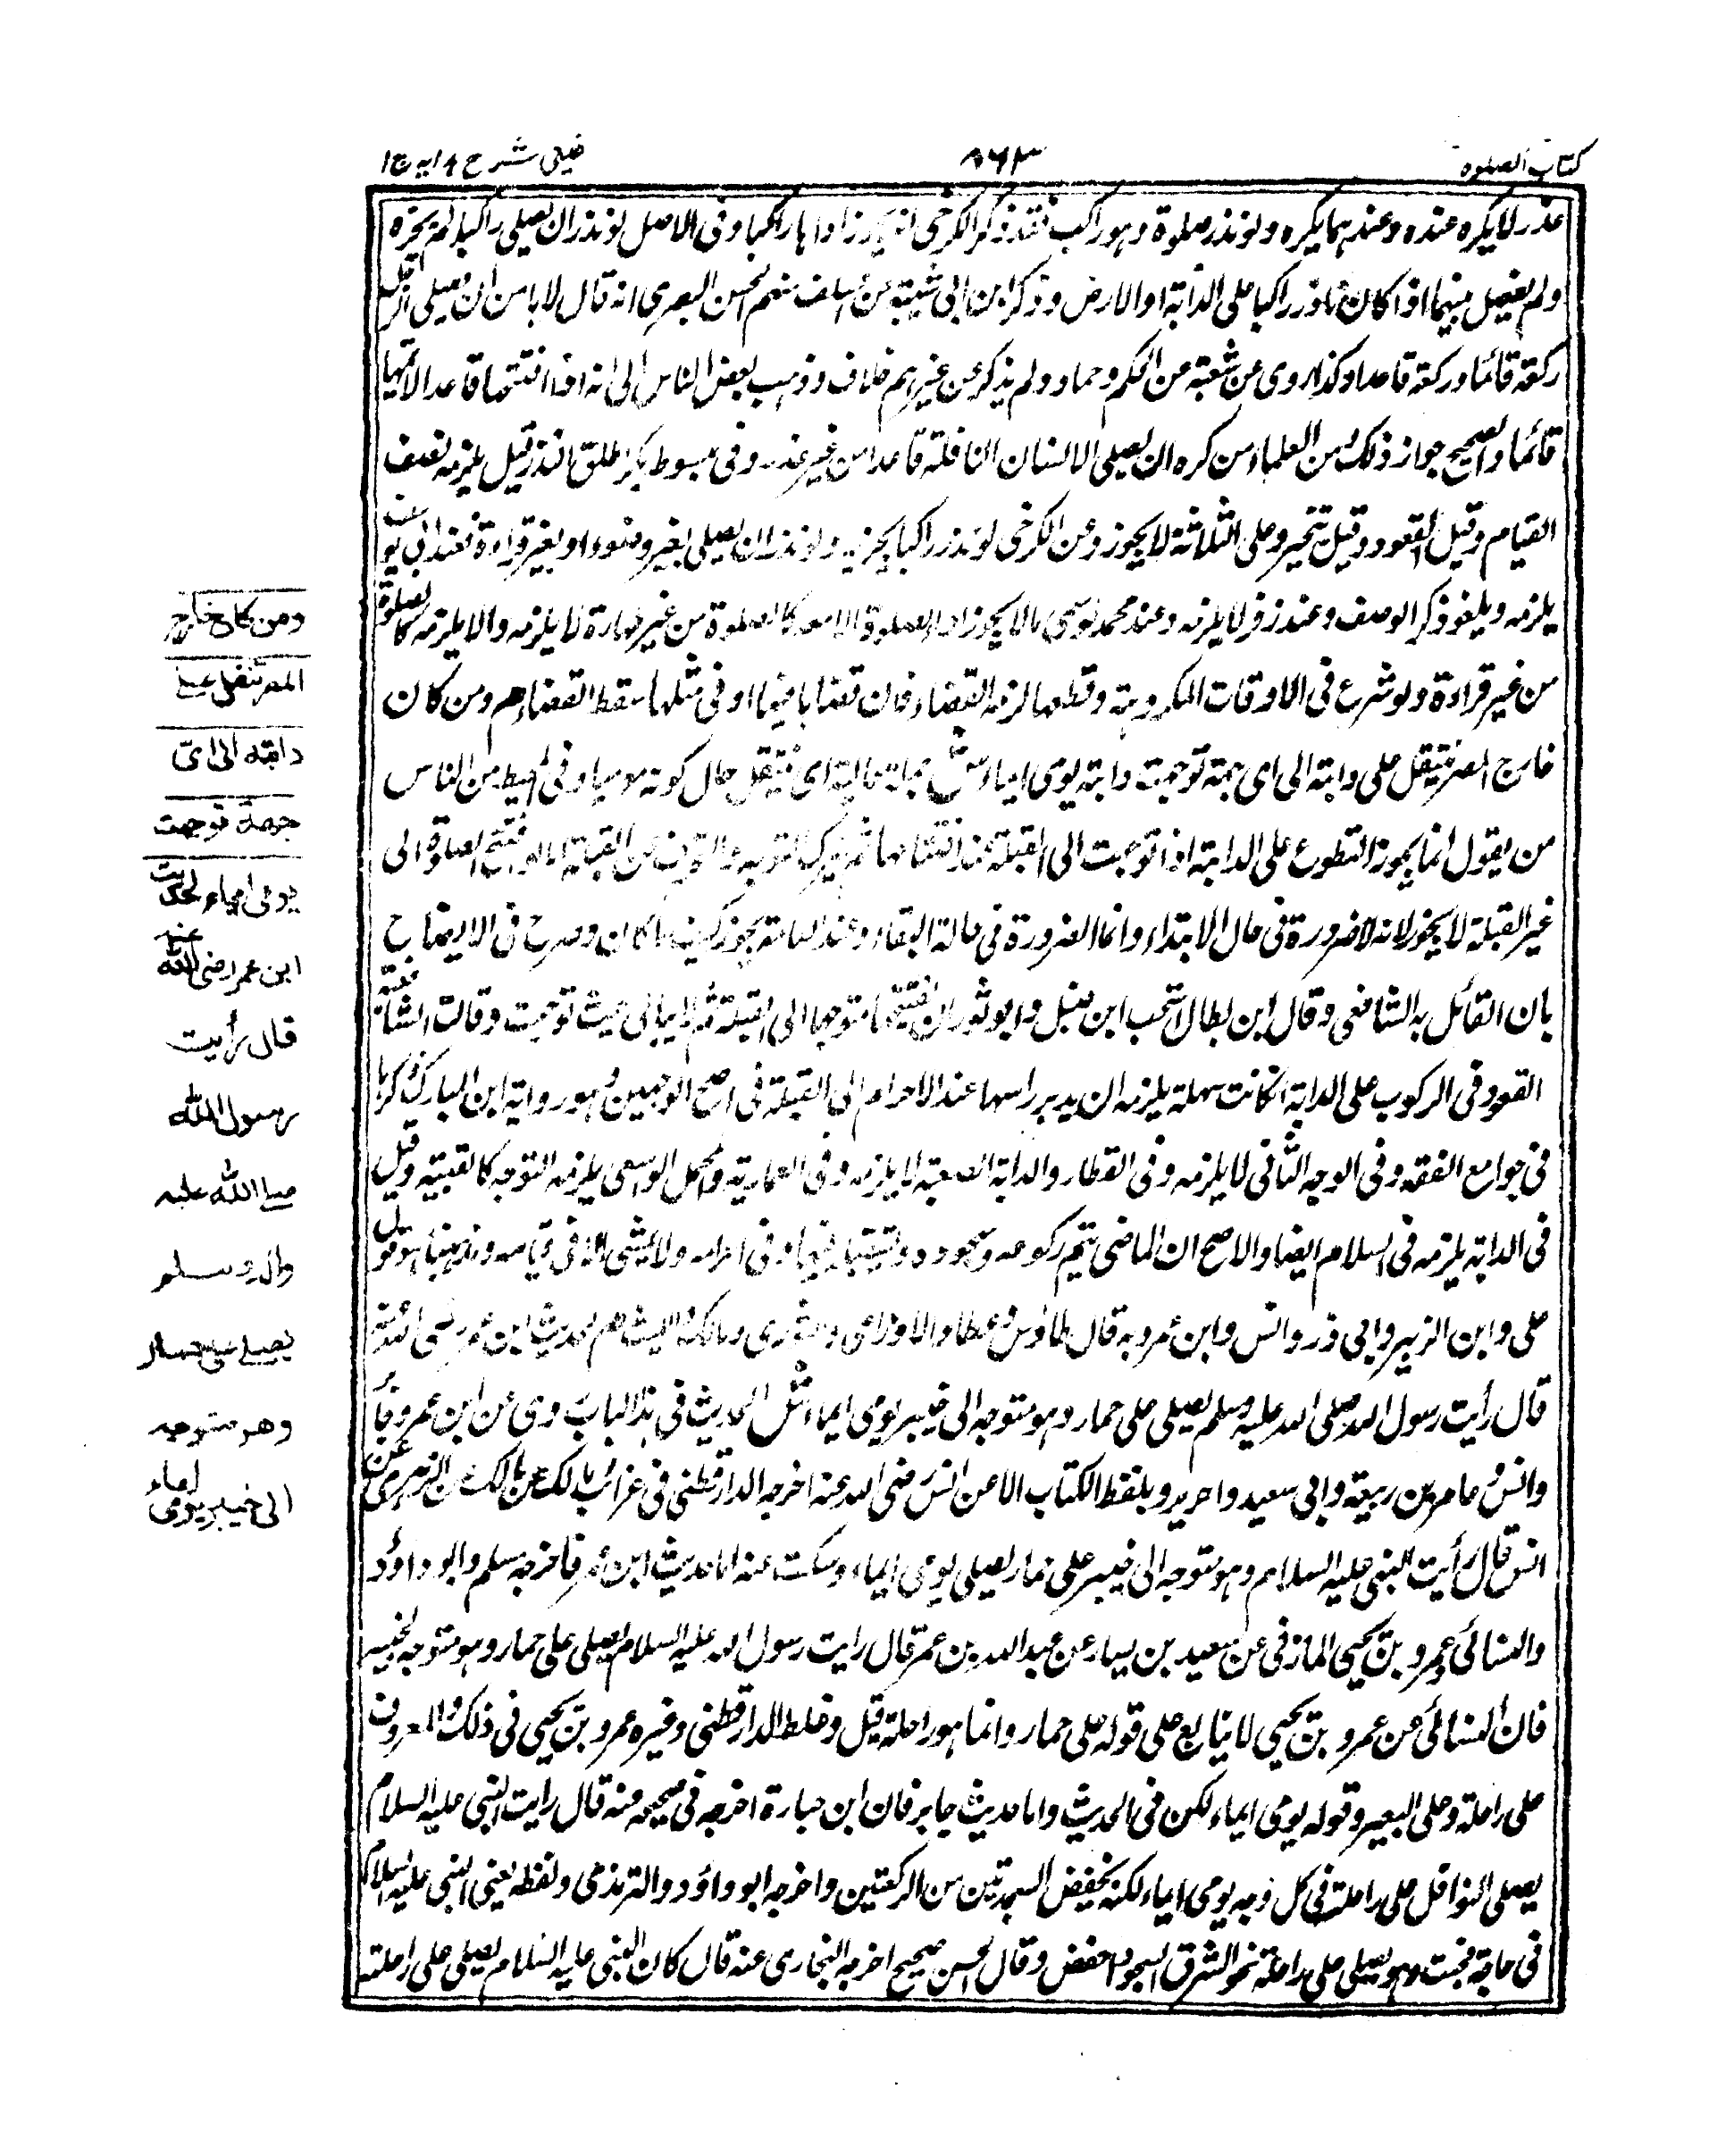 كتاب الصلوة
٨٦٣
عينى شرح هدايه ج ١
عذر لا يكره عنده وعندهما يكره ولو نذر صلوة وهو راكب فقد ذكر الكرخى انه يجوز اداها راكبا وفى الاصل لو نذر ان يصلى راكبا لم يجزه
ولم يفصل بينهما اذا كان نذر راكبا على الدابة او الارض وذكر ابن ابى شيبة عن السلف منهم الحسن البصرى انه قال لا باس ان يصلى الرجل
ركعة قائما وركعة قاعدا وكذا روى عن شعبة عن الحكم وحماد ولم يذكر عن غيرهم خلاف وذهب بعض الناس الى انه اذا افتتحها قاعدا لا يتمها
قائما والصحيح جواز ذلك ومن العلماء من كره ان يصلى الانسان النافلة قاعدا من غير عذر وفى مبسوط بكر اطلق النذر قيل يلزمه نصف
القيام وقيل القعود وقيل يتخير وعلى الثلاثة لا يجوز وعن الكرخى لو نذر راكبا يجزيه ولو نذر ان يصلى بغير وضوء او بغير قراءة فعند ابى يوسف
يلزمه ويلغو ذكر الوصف وعند زفر لا يلزمه وعند محمد لو سمى ما لا يجوز اداء الصلوة الا معه كالصلوة من غير طهارة لا يلزمه والا يلزمه كالصلوة
من غير قراءة ولو شرع فى الاوقات المكروهة وقطعها لزمه القضاء فان قضاها فيها او فى مثلها سقط القضاء م ومن كان
خارج المصر يتنفل على دابته الى اى جهة توجهت دابته يومى ايماء ش جملة حالية اى يتنفل حال كونه موميا وفى المحيط من الناس
من يقول انما يجوز التطوع على الدابة اذا توجهت الى القبلة عند افتتاحها ثم يترك التوجه والتحرف عن القبلة اما لو افتتح الصلوة الى
غير القبلة لا يجوز لانه لا ضرورة فى حال الابتداء وانما الضرورة فى حالة البقاء وعند العامة يجوز كيف ما كان وصرح فى الايضاح
بان القائل به الشافعى وقال ابن بطال استحب ابن حنبل وابو ثور ان يفتتحها متوجها الى القبلة ثم لا يبالى حيث توجهت وقالت الشافعية
القعود فى الركوب على الدابة ان كانت سهلة يلزمه ان يدير راسها عند الاحرام الى القبلة فى اصح الوجهين وهو رواية ابن المبارك ذكرها
فى جوامع الفقه وفى الوجه الثانى لا يلزمه وفى القطار والدابة الصعبة لا يلزمه وفى العمارية والمحمل الوسعى يلزمه التوجه كالقبتيه وقيل
فى الدابة يلزمه فى السلام ايضا والاصح ان الماضى يتم ركوعه وسجوده ويستقبل فيهما وفى احرامه ولا يمشى الا فى قيامه ومذهبنا هو قول
على وابن الزبير وابى ذر وانس وابن عمر وبه قال طاؤس وعطاء والاوزاعى والثورى ومالك والليث م لحديث ابن عمر رضى الله عنه
قال رأيت رسول الله صلى الله عليه وسلم يصلى على حمار وهو متوجه الى خيبر يومى ايماء ش الحديث فى هذا الباب روى عن ابن عمر وجابر
وانس وعامر بن ربيعة وابى سعيد واحرير وبلفظ الكتاب الا عن انس رضى الله عنه اخرجه الدارقطنى فى غرائب مالك عن مالك عن الزهرى عن
انس قال رأيت النبى عليه السلام وهو متوجه الى خيبر على حمار يصلى يومى ايماء وسكت عنه اما حديث ابن عمر فاخرجه مسلم وابو داؤد
والنسائى عمرو بن يحيى المازنى عن سعيد بن يسار عن عبد الله بن عمر قال رايت رسول الله عليه السلام يصلى على حمار وهو متوجه لخيبر
فان النسائى عن عمرو بن يحيى لا يتابع على قوله على حمار وانما هو راحلة قيل وغلط الدارقطنى وغيره عمرو بن يحيى فى ذلك والمعروف
على راحلة وعلى البعير وقوله يومى ايماء لكن فى الحديث واما حديث جابر فان ابن حبارة اخرجه فى صحيحه عنه قال رايت النبى عليه السلام
يصلى النوافل على راحلته فى كل وجه يومى ايماء لكنه يخفض السجدتين من الركعتين واخرجه ابو داؤد والترمذى ولفظه بعثنى النبى عليه السلام
فى حاجة فجئت وهو يصلى على راحلته نحو الشرق السجود اخفض وقال حسن صحيح اخرجه البخارى عنه قال كان النبى عليه السلام يصلى على راحلته
ومن كان خارج
المصر تنفل على
دابته الى اى
جهة توجهت
يومى ايماء لحديث
ابن عمر رضى الله عنه
قال رأيت
رسول الله
صلى الله عليه
واله وسلم
يصلى على حمار
وهو متوجه
الى خيبر يومى ايماء